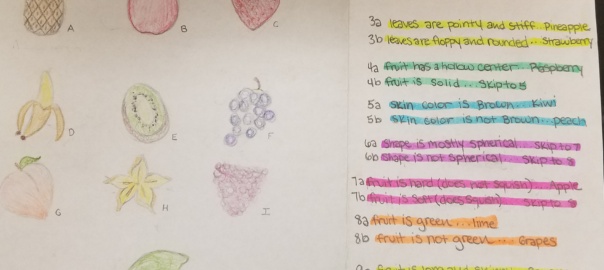 A
B
C
D
E
F
G
H
I
3a leaves are pointy and stiff.. Pineapple
3b leaves are floppy and rounded... Strawberry
4a fruit has a hollow center... Raspberry
4b fruit is solid... Skip to 5
5a skin color is Brown... Kiwi
5b skin color is not Brown... peach
6a shape is mostly spherical... Skip to 7
6b shape is not spherical... Skip to 8
7a fruit is hard (does not squish) ... Apple
7b fruit is soft (does squish) ... Skip to 8
8a fruit is green... lime
8b fruit is not green.... Grapes